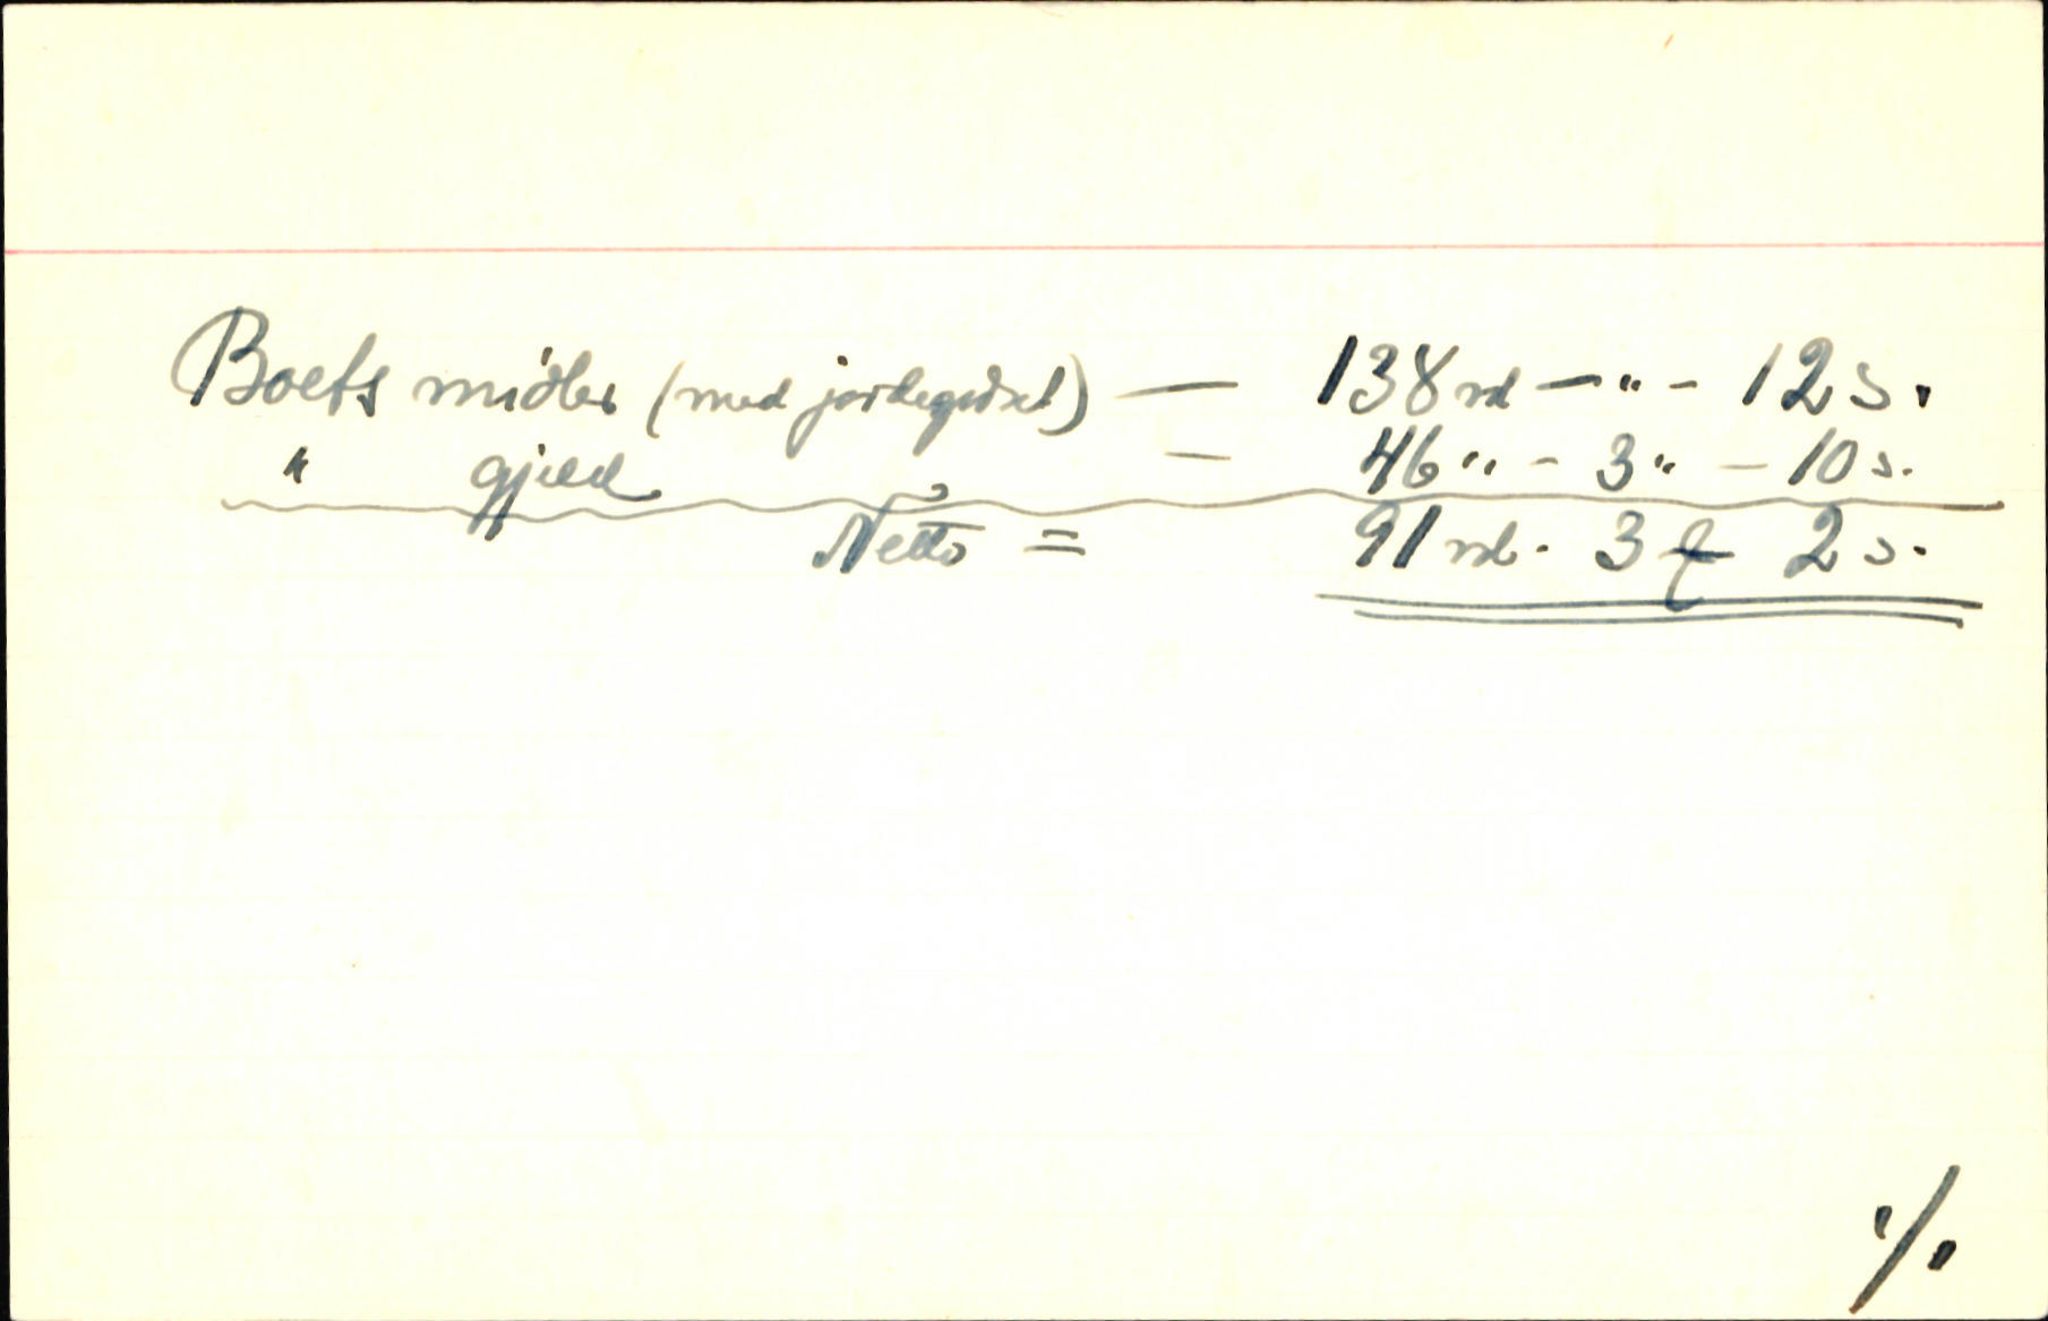 Boets midler (med jordegodset) — 138 rd — " - 12 s.
" gjeld — 46 " - 3 " - 10 s.
Netto = 91 rd. 3 q 2 s.
·/.